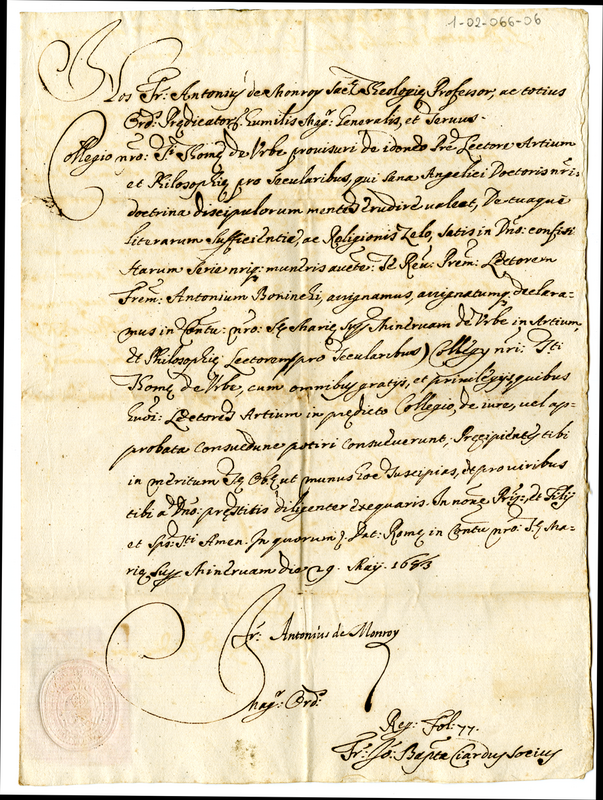 1-02-066-06
Nos Fr: Antoniuſ de Monroy Sac: Theologię Professor, ac totius
Ord: Predicator: humilis Mag: Generalis, et Seruus.
Collegio nro: Sti Thomę de Vrbe prouisuri de idoneo Pre Lectore Artium
et Philosophię pro Secularibus, qui sana Angelici Doctoris nri:
doctrina discipulorum mentes erudire valeat, De tuaque
literarum sufficientia, ac Religionis Zelo, satis in Dno: confisi
Harum Serie nriq: muneris aucte: Te Reu: Prem: Lectorem
Frem: Antonium Boninchi, assignamus, assignatumq declara-
mus in Conu: nro: Stę Marię Sup Mineruam de Vrbe in Artium,
et Philosophię Lectorem (pro Secularibus) Collegij nri: Sti
Thomę de Vrbe, cum omnibus gratijs, et priuilegijs, quibus
huiői: Lectores Artium in prędicto Collegio, de iure, uel ap-
probata consuetudine potiri consueuerunt; Pręcipientes tibi
in meritum Stę Obę ut munus hoc suscipias, et pro uiribus
tibi a Dno: pręstitis diligenter exequaris. In noxe Pris: et Filij
et Sps: Sti Amen. In quorum &. Dat: Romę in Conu nro: Stę Ma-
rię Sup Mineruam die 29. Maij. 1683
Fr: Antonius de Monroy
Mag: Ord:
Reg: Fol: 77.
Fr: Jo: Bapta Ciardus Socius